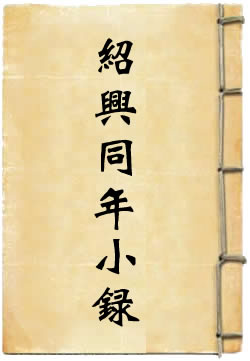 紹興同年小録